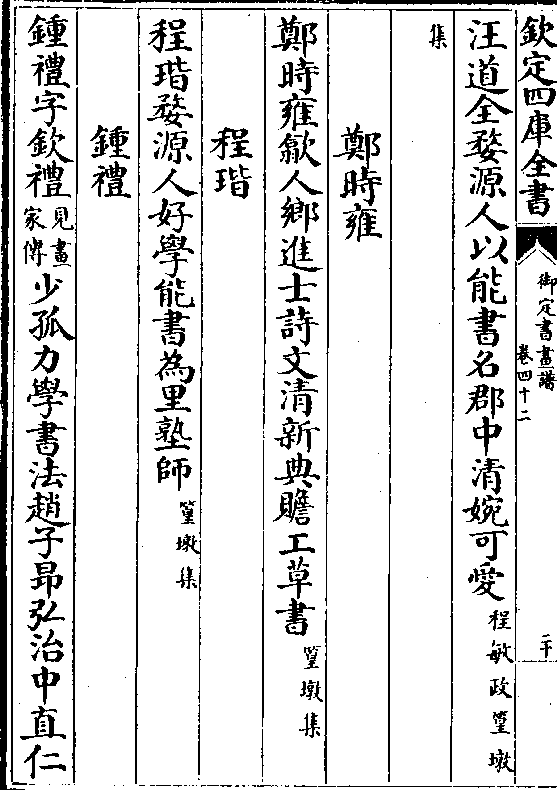 欽定四庫全書
御定書畫譜
卷四十二
二十
汪道全婺源人以能書名郡中清婉可愛程敏政篁墩
集
鄭時雍
鄭時雍歙人鄉進士詩文清新典贍工草書篁墩集
程瑎
程瑎婺源人好學能書為里塾師篁墩集
鍾禮
鍾禮字欽禮見畫家傳少孤力學書法趙子昂弘治中直仁